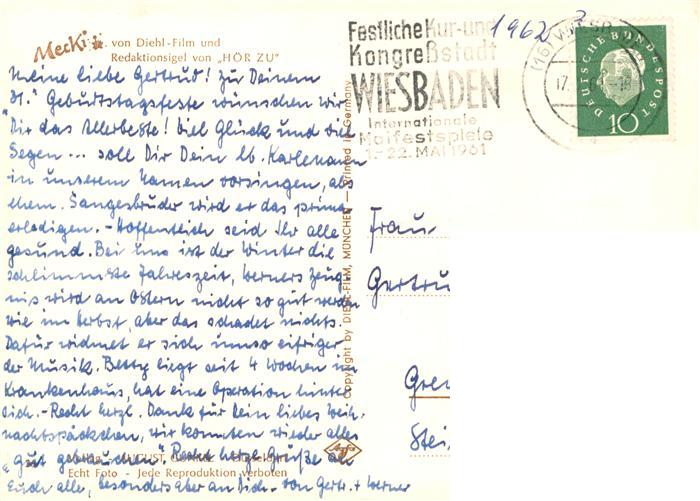 Mecki von Diehl-Film und
Redaktionsigel von „HÖR ZU"
Meine liebe Gertrud! Zu Deinem
31. Geburtstagsfeste wünschen wir
Dir das Allerbeste! Viel Glück und viel
Segen... soll Dir Dein lb. Karlemann
in unserem Namen vorsingen, als
ehem. Sangesbruder wird er das prima
erledigen. - Hoffentlich seid Ihr alle
gesund. Bei uns ist der Winter die
schlimmste Jahreszeit, Werners Zeug-
nis wird an Ostern nicht so gut werden
wie im Herbst, aber das schadet nichts.
Dafür widmet er sich umso eifriger
der Musik. Betty liegt seit 4 Wochen im
Krankenhaus, hat eine Operation hinter
sich. - Recht herzl. Dank für Dein liebes Weih-
nachtspäckchen, wir konnten wieder alles
„gut gebrauchen". Recht herzl. Grüße an
Euch alle, besonders aber an Dich. von Gertr. + Werner
AUGUST
Echt Foto - Jede Reproduktion verboten
Copyright by DIEHL-FILM, MÜNCHEN — Printed in Germany
Festliche Kur- und
Kongreßstadt
WIESBADEN
Internationale
Maifestspiele
1.-22. MAI 1961
1962 ?
(16) WIESB
17.
DEUTSCHE BUNDESPOST
10
Frau
Gertru
Gre
Stei